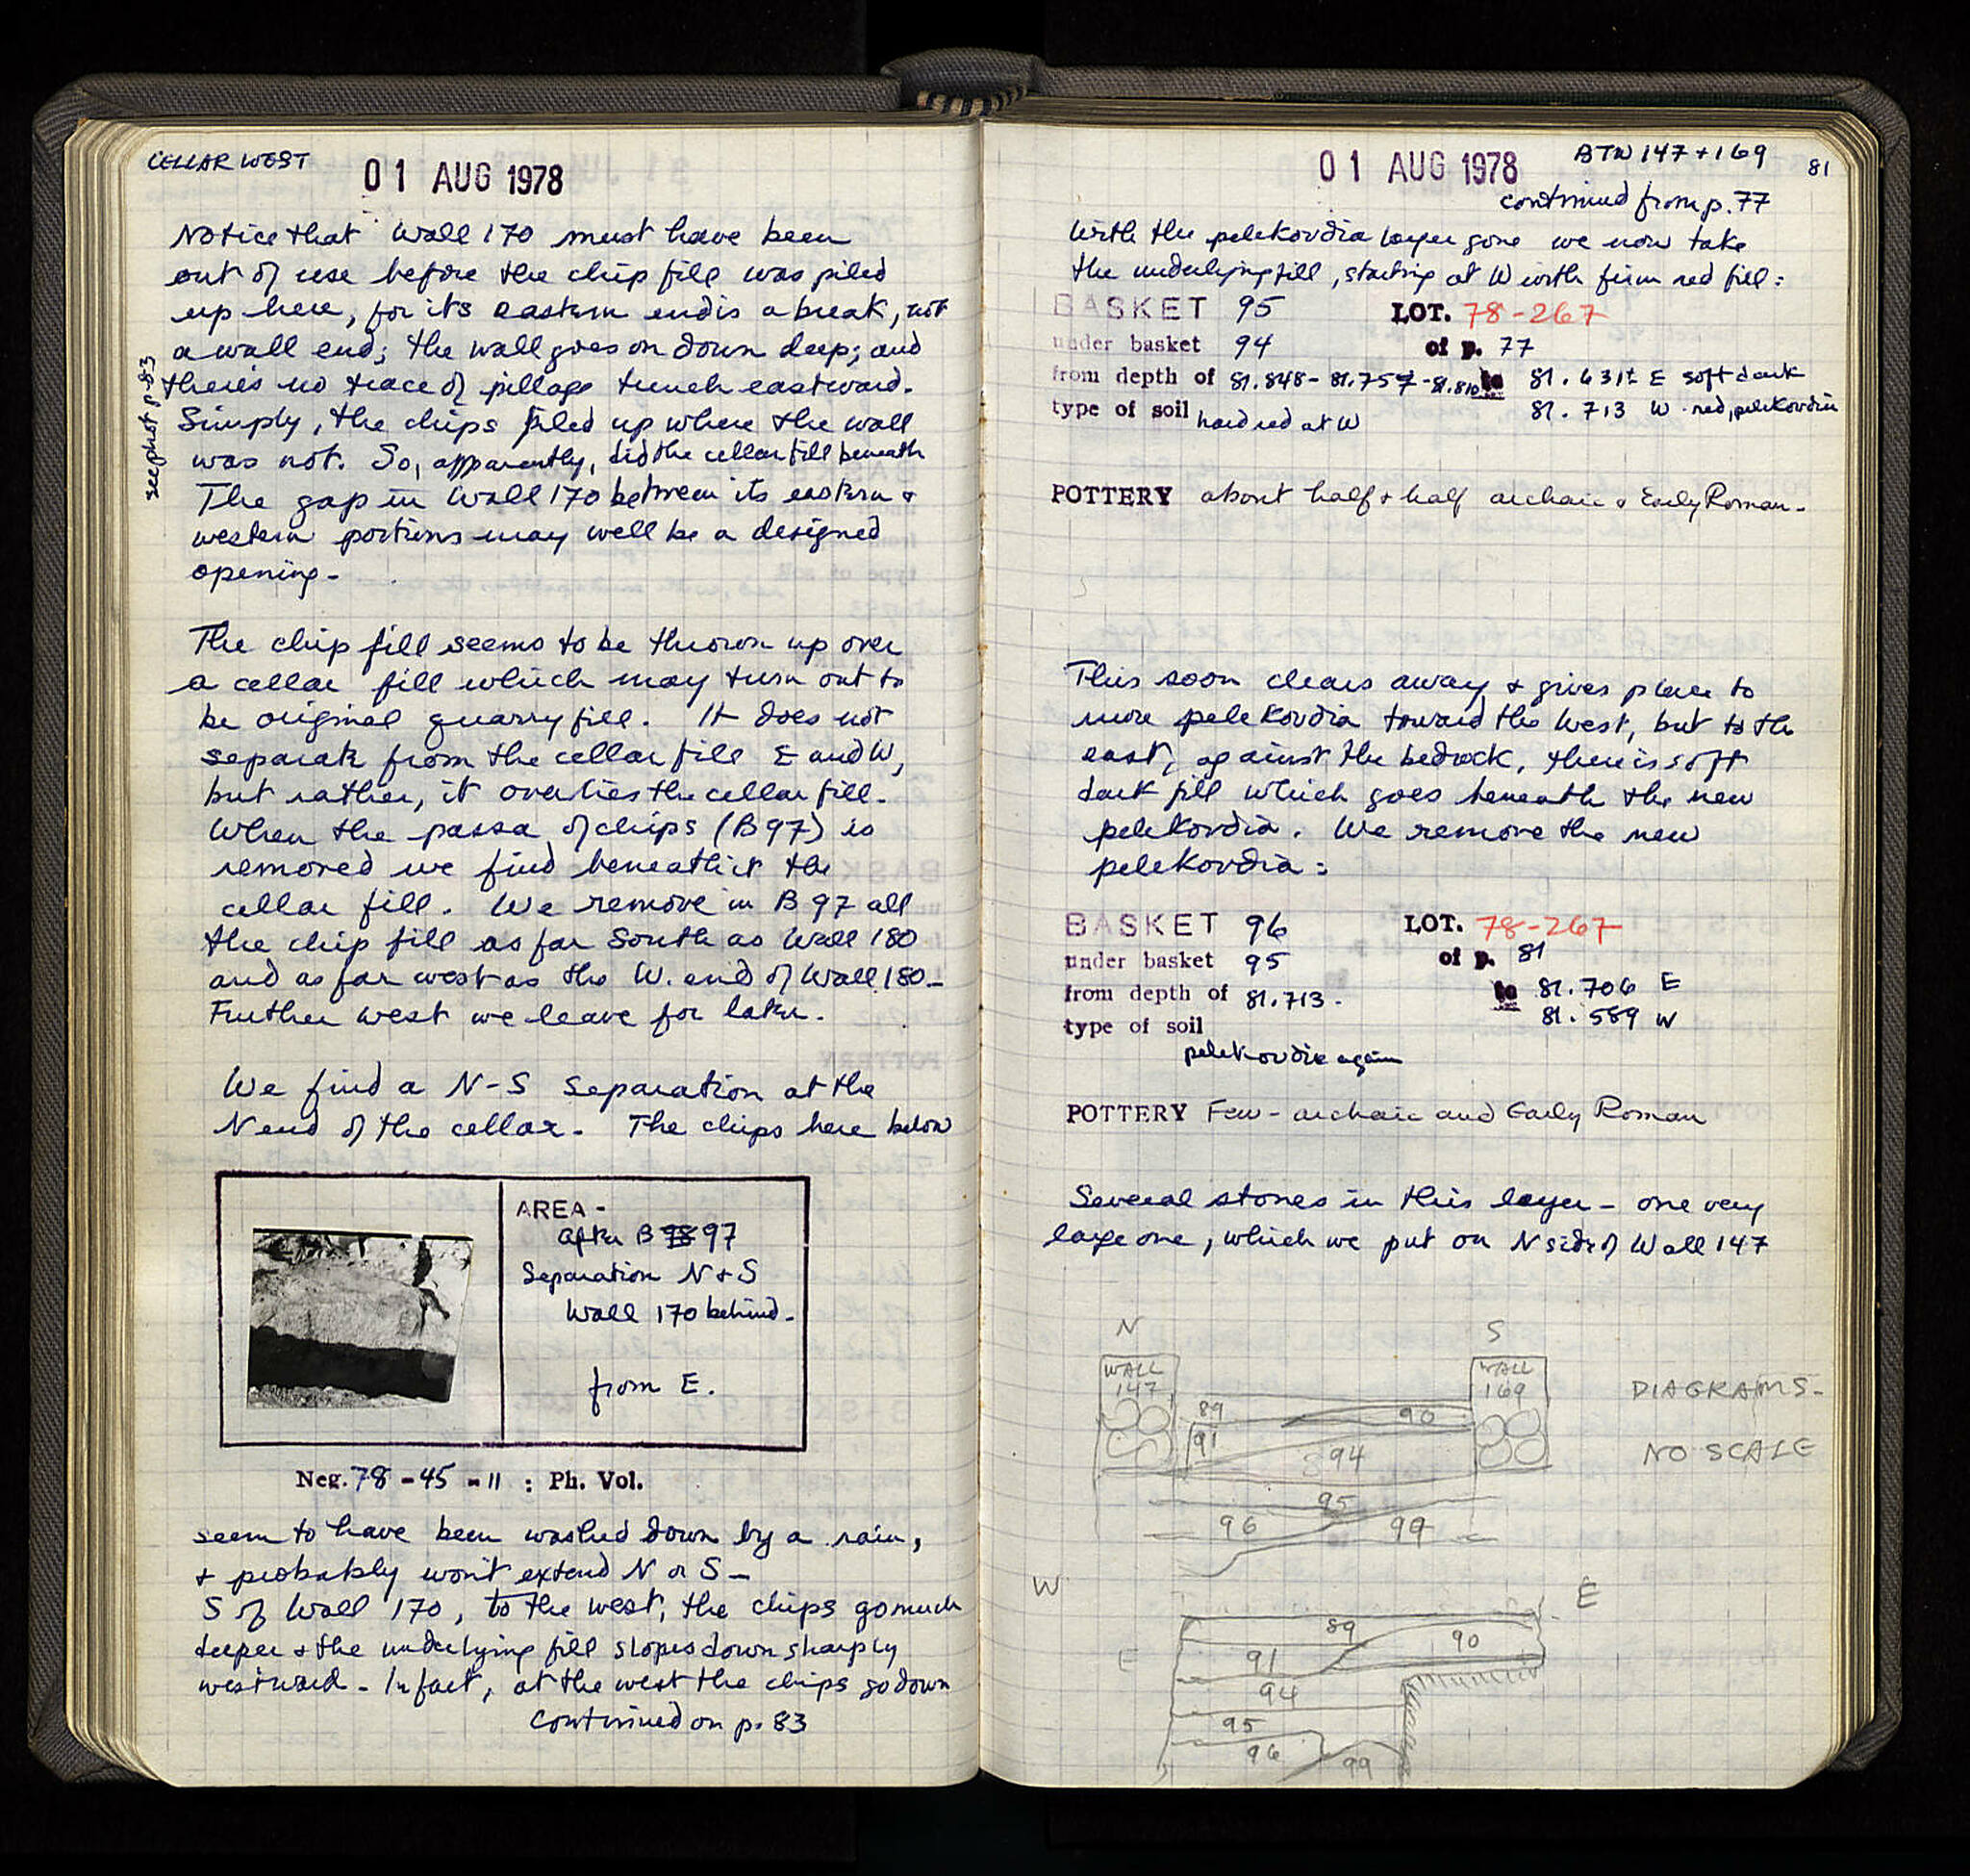 CELLAR WEST
01 AUG 1978
Notice that Wall 170 must have been
out of use before the chip fill was piled
up here, for its eastern end is a break, not
a wall end; the wall goes on down deep; and
there's no trace of pillage trench eastward.
Simply, the chips piled up where the wall
was not. So, apparently, did the cellar fill beneath
The gap in Wall 170 between its eastern +
western portions may well be a designed
opening.
see phot p. 83
The chip fill seems to be thrown up over
a cellar fill which may turn out to
be original quarry fill. It does not
separate from the cellar fill E and W,
but rather, it overlies the cellar fill.
When the passa of chips (B 97) is
removed we find beneath it the
cellar fill. We remove in B 97 all
the chip fill as far South as Wall 180
and as far west as the W. end of Wall 180-
Further west we leave for later.
We find a N-S separation at the
N end of the cellar. The chips here below
AREA -
after B 97
Separation N + S
Wall 170 behind.
from E.
Neg. 78 - 45 - 11 : Ph. Vol.
seem to have been washed down by a rain,
+ probably won't extend N or S -
S of Wall 170, to the west, the chips go much
deeper + the underlying fill slopes down sharply
westward - In fact, at the west the chips go down
continued on p. 83
01 AUG 1978
BTW 147 + 169
81
continued from p. 77
With the pelekoudia layer gone we now take
the underlying fill, starting at W with firm red fill:
BASKET 95 LOT. 78-267
under basket 94 of p. 77
from depth of 81.848 - 81.757 - 81.810 to 81.631± E soft dark
type of soil hard red at W 81.713 W red, pelekoudia
POTTERY about half + half archaic + Early Roman.
This soon clears away + gives place to
more pelekoudia toward the west, but to the
east, against the bedrock, there is soft
dark fill which goes beneath the new
pelekoudia. We remove the new
pelekoudia:
BASKET 96 LOT. 78-267
under basket 95 of p. 81
from depth of 81.713. to 81.706 E
81.589 W
type of soil
pelekoudia again
POTTERY Few - archaic and Early Roman
Several stones in this layer - one very
large one, which we put on N side of Wall 147
N S
WALL 147
WALL 169
DIAGRAMS-
NO SCALE
89
90
91
94
95
96
99
W E
89
90
91
94
95
96
99